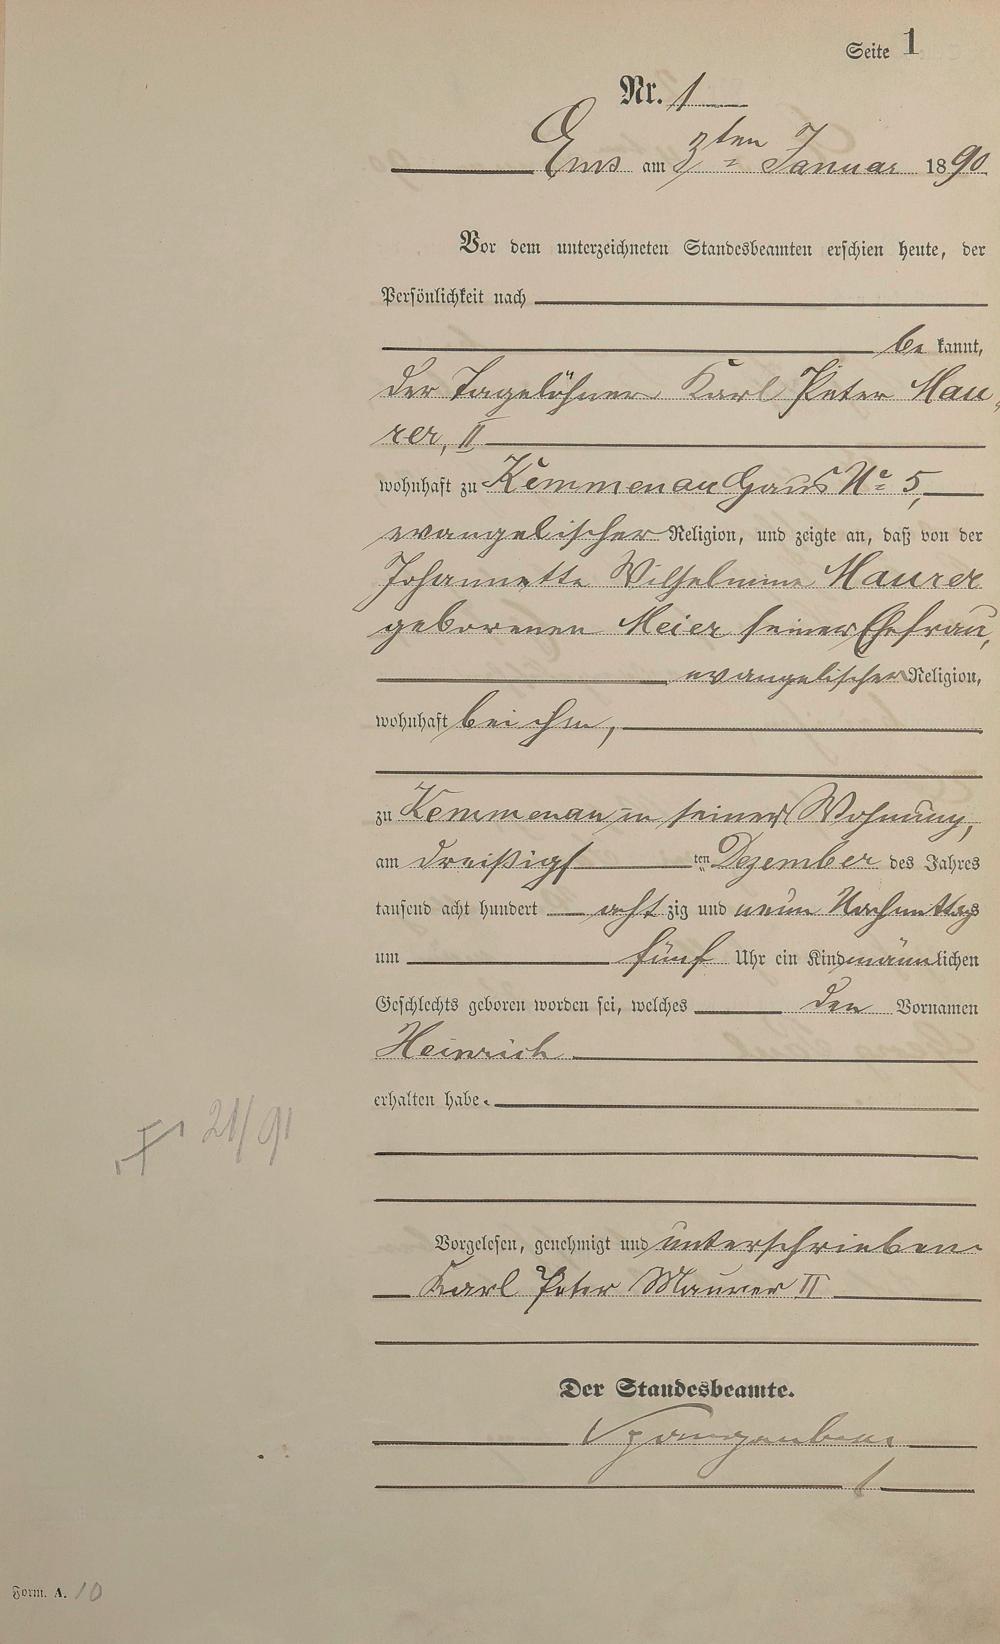 Seite 1
Nr. 1
Ems am 3ten Januar 1890
Vor dem unterzeichneten Standesbeamten erschien heute, der
Persönlichkeit nach
be kannt,
der Tagelöhner Karl Peter Mau-
rer, II
wohnhaft zu Kemmenau Haus No 5,
evangelischer Religion, und zeigte an, daß von der
Johannette Wilhelmine Maurer
geborenen Meier seiner Ehefrau,
evangelischer Religion,
wohnhaft bei ihm,
zu Kemmenau in seiner Wohnung,
am dreißigs ten Dezember des Jahres
tausend acht hundert acht zig und neun Nachmittags
um fünf Uhr ein Kind männlichen
Geschlechts geboren worden sei, welches den Vornamen
Heinrich
erhalten habe.
21/91
Vorgelesen, genehmigt und unterschrieben
Karl Peter Maurer II
Der Standesbeamte.
Form. A. 10